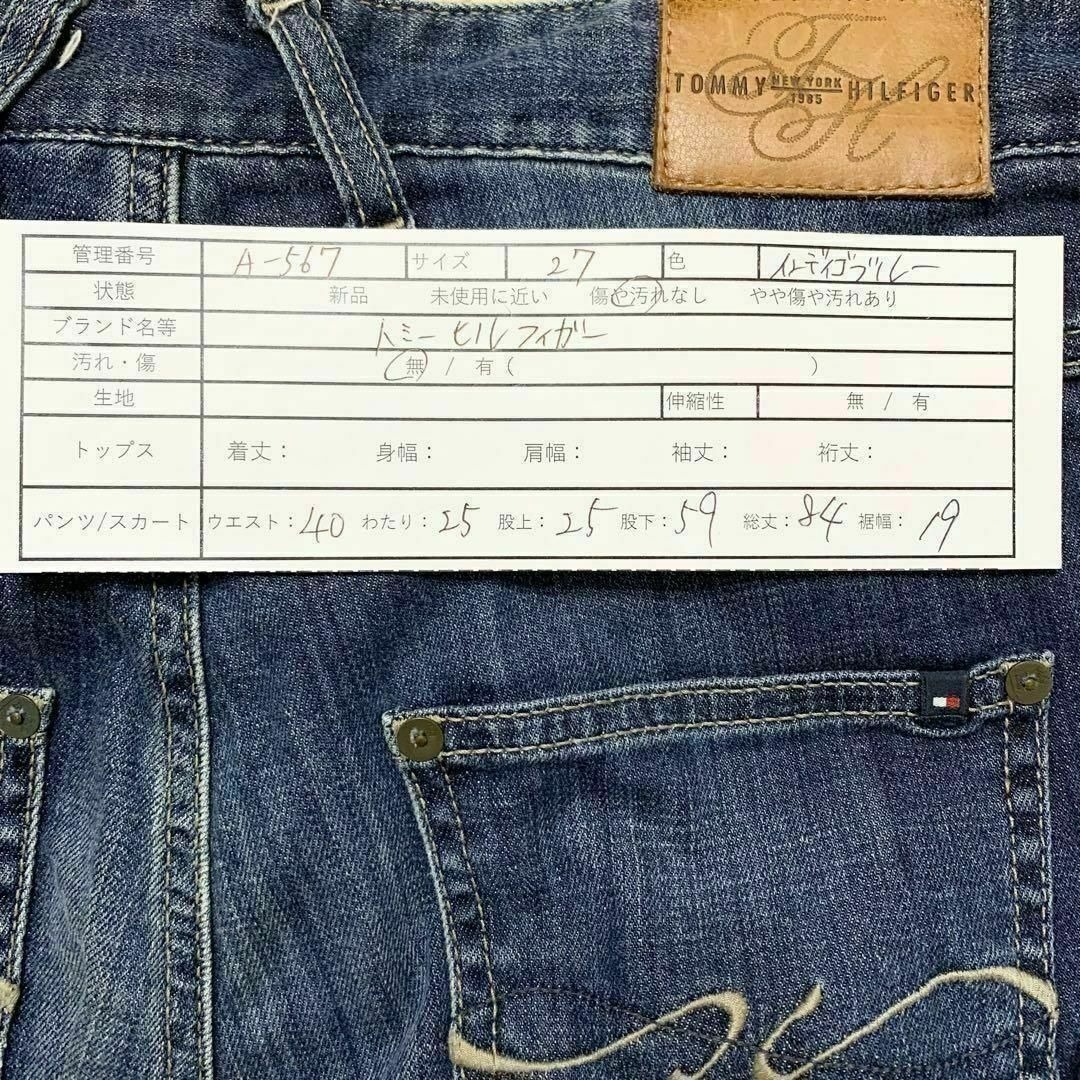 TOMMY NEW YORK HILFIGER
1985
TH
管理番号 A-567 サイズ 27 色 インディゴブルー
状態 新品 未使用に近い 傷や汚れなし やや傷や汚れあり
ブランド名等 トミーヒルフィガー
汚れ・傷 無 / 有 ( )
生地 伸縮性 無 / 有
トップス 着丈: 身幅: 肩幅: 袖丈: 裄丈:
パンツ/スカート ウエスト:40 わたり:25 股上:25 股下:59 総丈:84 裾幅:19